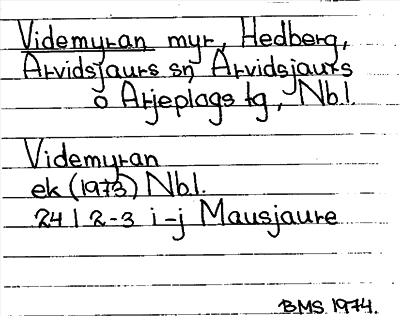 Videmyran myr, Hedberg,
Arvidsjaurs sn, Arvidsjaurs
o Arjeplogs tg, Nbl.
Videmyran
ek (1973) Nbl.
24 I 2-3 i-j Mausjaure
BMS 1974.